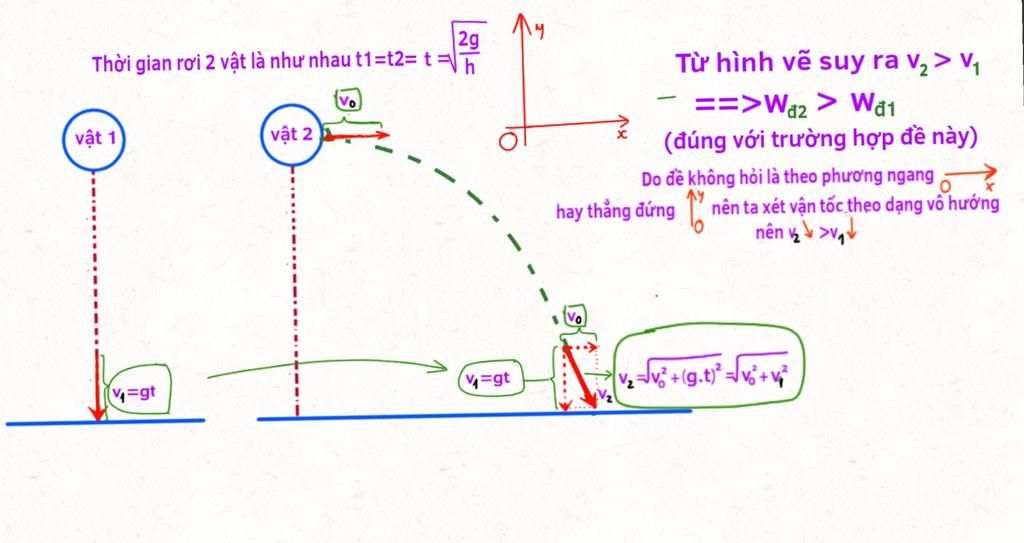 Thời gian rơi 2 vật là như nhau t1=t2= t =√(2g/h)
y
x
O
Từ hình vẽ suy ra v₂ > v₁
==>Wđ2 > Wđ1
(đúng với trường hợp đề này)
Do đề không hỏi là theo phương ngang O x
hay thẳng đứng y O nên ta xét vận tốc theo dạng vô hướng
nên v₂ >v₁
vật 1
vật 2
v₀
v₀
v₁=gt
v₁=gt
v₂
v₂=√(v₀²+(g.t)²)=√(v₀²+v₁²)